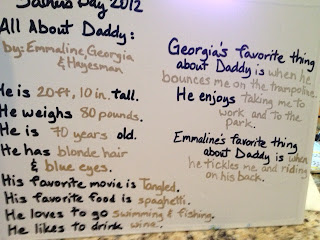 Father's Day 2012
All About Daddy:
by: Emmaline, Georgia
& Hayesman
He is 20 ft, 10 in. tall.
He weighs 80 pounds.
He is 70 years old.
He has blonde hair
& blue eyes.
His favorite movie is Tangled.
His favorite food is spaghetti.
He loves to go swimming & fishing.
He likes to drink wine.
Georgia's favorite thing
about Daddy is when he
bounces me on the trampoline.
He enjoys taking me to
work and to the
park.
Emmaline's favorite thing
about Daddy is when
he tickles me and riding
on his back.